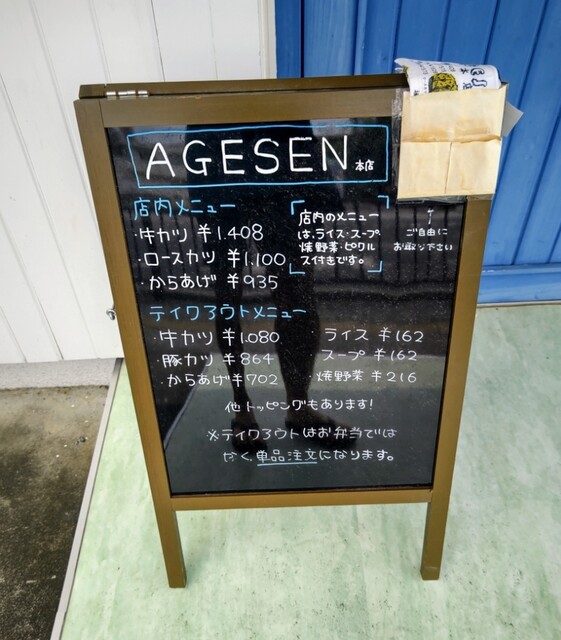 AGESEN 本店
店内メニュー
・牛カツ ¥1,408
・ロースカツ ¥1,100
・からあげ ¥935
店内のメニュー
は、ライス・スープ
焼野菜・ピクル
ス付きです。
↑
ご自由に
お取り下さい
テイクアウトメニュー
・牛カツ ¥1,080
・豚カツ ¥864
・からあげ ¥702
・ライス ¥162
スープ ¥162
・焼野菜 ¥216
他トッピングもあります!
※テイクアウトはお弁当では
なく、単品注文になります。